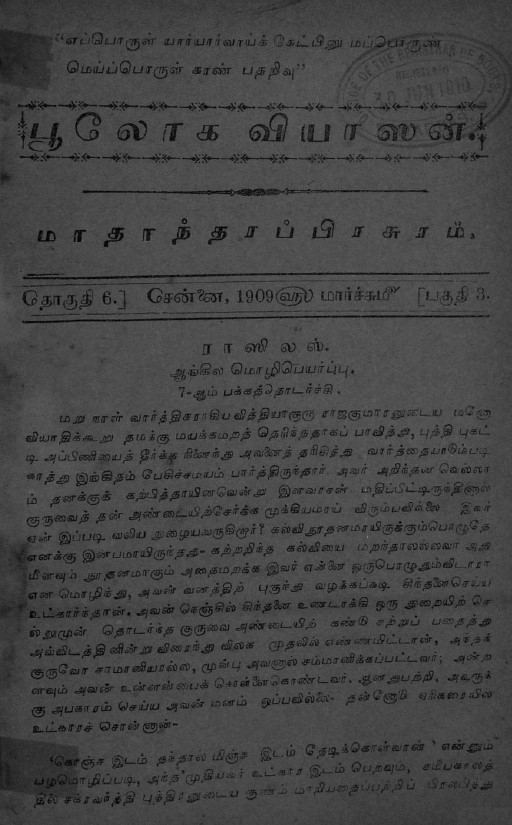 “எப்பொருள் யார்யார்வாய்க் கேட்பினு மப்பொருண்
மெய்ப்பொருள் காண் பதறிவு”
பூலோக வியாஸன்.
மாதாந்தரப்பிரசுரம்.
தொகுதி 6.] சென்னை, 1909௵ மார்ச்சு௴ [பகுதி 3.
ராஸிலஸ்.
ஆங்கில மொழிபெயர்ப்பு.
7-ஆம் பக்கத்தொடர்ச்சி.
மறு நாள் வார்த்திகராகிய வித்தியாகுரு ராஜகுமாரனுடைய மனோ
வியாதிக்கூறு தமக்கு மயக்கமறத் தெரிந்ததாகப் பாவித்து, புத்தி புகட்
டி அப்பிணியைத் தீர்க்க நினைத்து அவனைத் தரிசித்து வார்த்தையாடும்படி
காத்து இங்கிதம் பேசிச்சமயம் பார்த்திருந்தார். அவர் அறிந்தன வெல்லா
ம் தனக்குக் கற்பித்தாயினவென்று இளவரசன் மதிப்பிட்டிருந்தினால்
குருவைத் தன் அண்டையிற்சேர்க்க முக்கியமாய் விரும்பவில்லை இவர்
ஏன் இப்படி வலிய நுழையவருகிறார்? கல்வி நூதனமாயிருக்கும்பொழுதே
எனக்கு இன்பமாயிருந்தது- கற்றறிந்த கல்வியை மறந்தாலல்லவா அது
மீளவும் நூதனமாகும் அதைமறக்க இவர் என்னை ஒருபொழுதும்விடாரா
என மொழிந்து, அவன் வனத்திற் புகுந்து வழக்கப்படி சிந்தனைசெய்ய
உட்கார்ந்தான். அவன் நெஞ்சில் சிந்தனை உண்டாக்கி ஒரு துறையிற் செ
ல்லுமுன் தொடர்ந்த குருவை அண்டையிற் கண்டு சற்றுப் பதைத்து
அவ்விடத்தினின்று விரைந்து விலக முதலில் எண்ணமிட்டான், அந்தக்
குருவோ சாமானியரல்ல, முன்பு அவனால் சம்மானிக்கப்பட்டவர்; அன்ற
ளவும் அவன் உள்ளன்பைக் கொள்ளைகொண்டவர். ஆனதுபற்றி, அவருக்
கு அபகாரம் செய்ய அவன் மனம் ஒப்பவில்லை- தன்னோடு ஏரிகரையில்
உட்காரச் சொன்னான்-
‘கொஞ்ச இடம் தந்தால் மிஞ்ச இடம் தேடிக்கொள்வான்’ என்னும்
பழமொழிப்படி, அந்த முதியவர் உட்கார இடம் பெறவும், சமீபகாலத்
தில் சக்ரவர்த்தி புத்திரனுடைய குணம் மாறியதைப்பற்றிப் பிரலபித்து